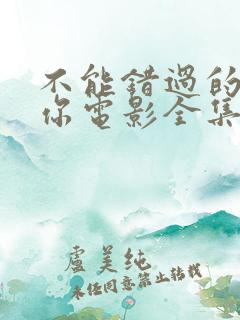 不能错過的
你电影全集
盧美纯
未经同意禁止转载